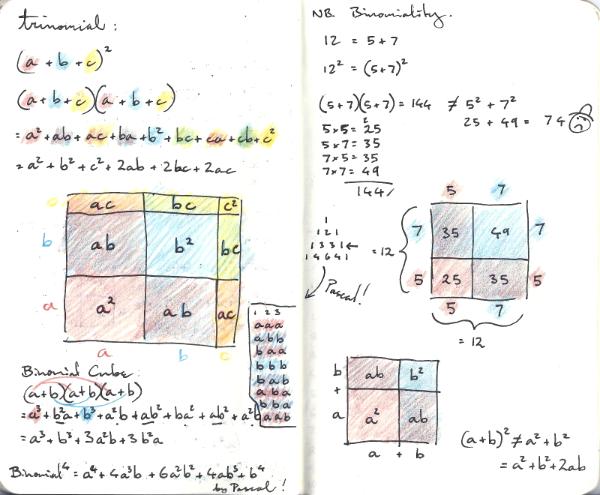 trinomial:
(a + b + c)²
(a+b+c)(a+b+c)
= a²+ab+ac+ba+b²+bc+ca+cb+c²
= a²+b²+c²+2ab+2bc+2ac
ac bc c²
b ab b² bc
a a² ab ac
a b c
1 2 3
aaa
abb
baa
bbb
bab
aba
bba
aab
Binomial Cube
(a+b)(a+b)(a+b)
= a³+b²a+b³+a²b+ab²+ba²+ab²+a²b
= a³+b³+3a²b+3b²a
Binomial⁴ = a⁴+4a³b+6a²b²+4ab³+b⁴
by Pascal!
NB. Binomiality.
12 = 5+7
12² = (5+7)²
(5+7)(5+7) = 144 ≠ 5²+7²
25 + 49 = 74
5×5 = 25
5×7 = 35
7×5 = 35
7×7 = 49
144
1
1 2 1
1 3 3 1 ←
1 4 6 4 1
Pascal!
5 7
= 12
7 35 49 7
5 25 35 5
5 7
= 12
b ab b²
+
a a² ab
a + b
(a+b)² ≠ a²+b²
= a²+b²+2ab